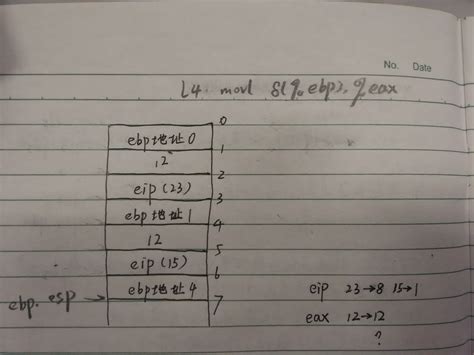 No. Date
L4. movl 8(%ebp), %eax
0
ebp地址0
1
12
2
eip(23)
3
ebp地址1
4
12
5
eip(15)
6
ebp. esp → ebp地址4
7
eip 23→8 15→1
eax 12→12
?